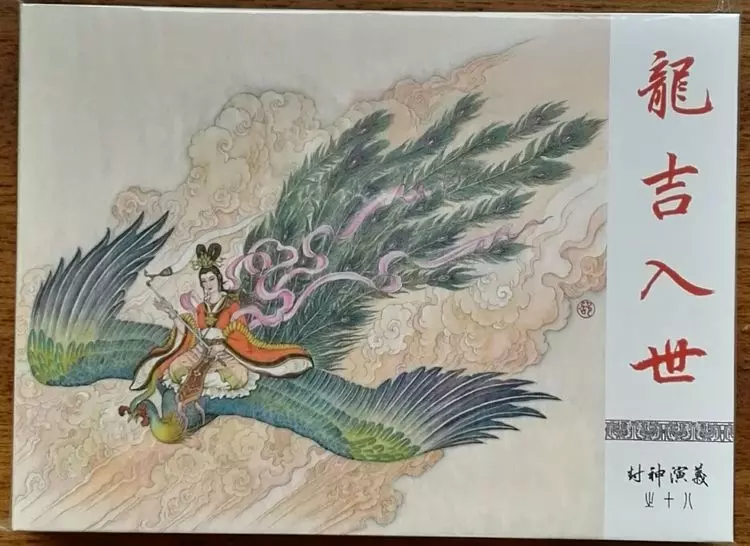 龍吉入世
封神演義
之十八